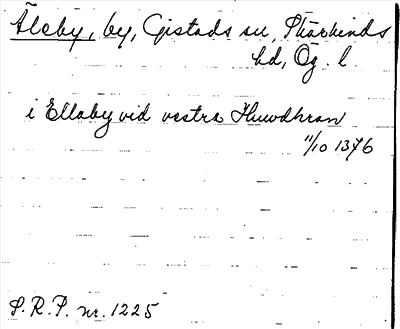 Äleby, by, Gistads sn, Skärkinds
hd, Ög. l.
i Ellaby vid vestra Huwdhran
11/10 1376
S.R.P. nr. 1225